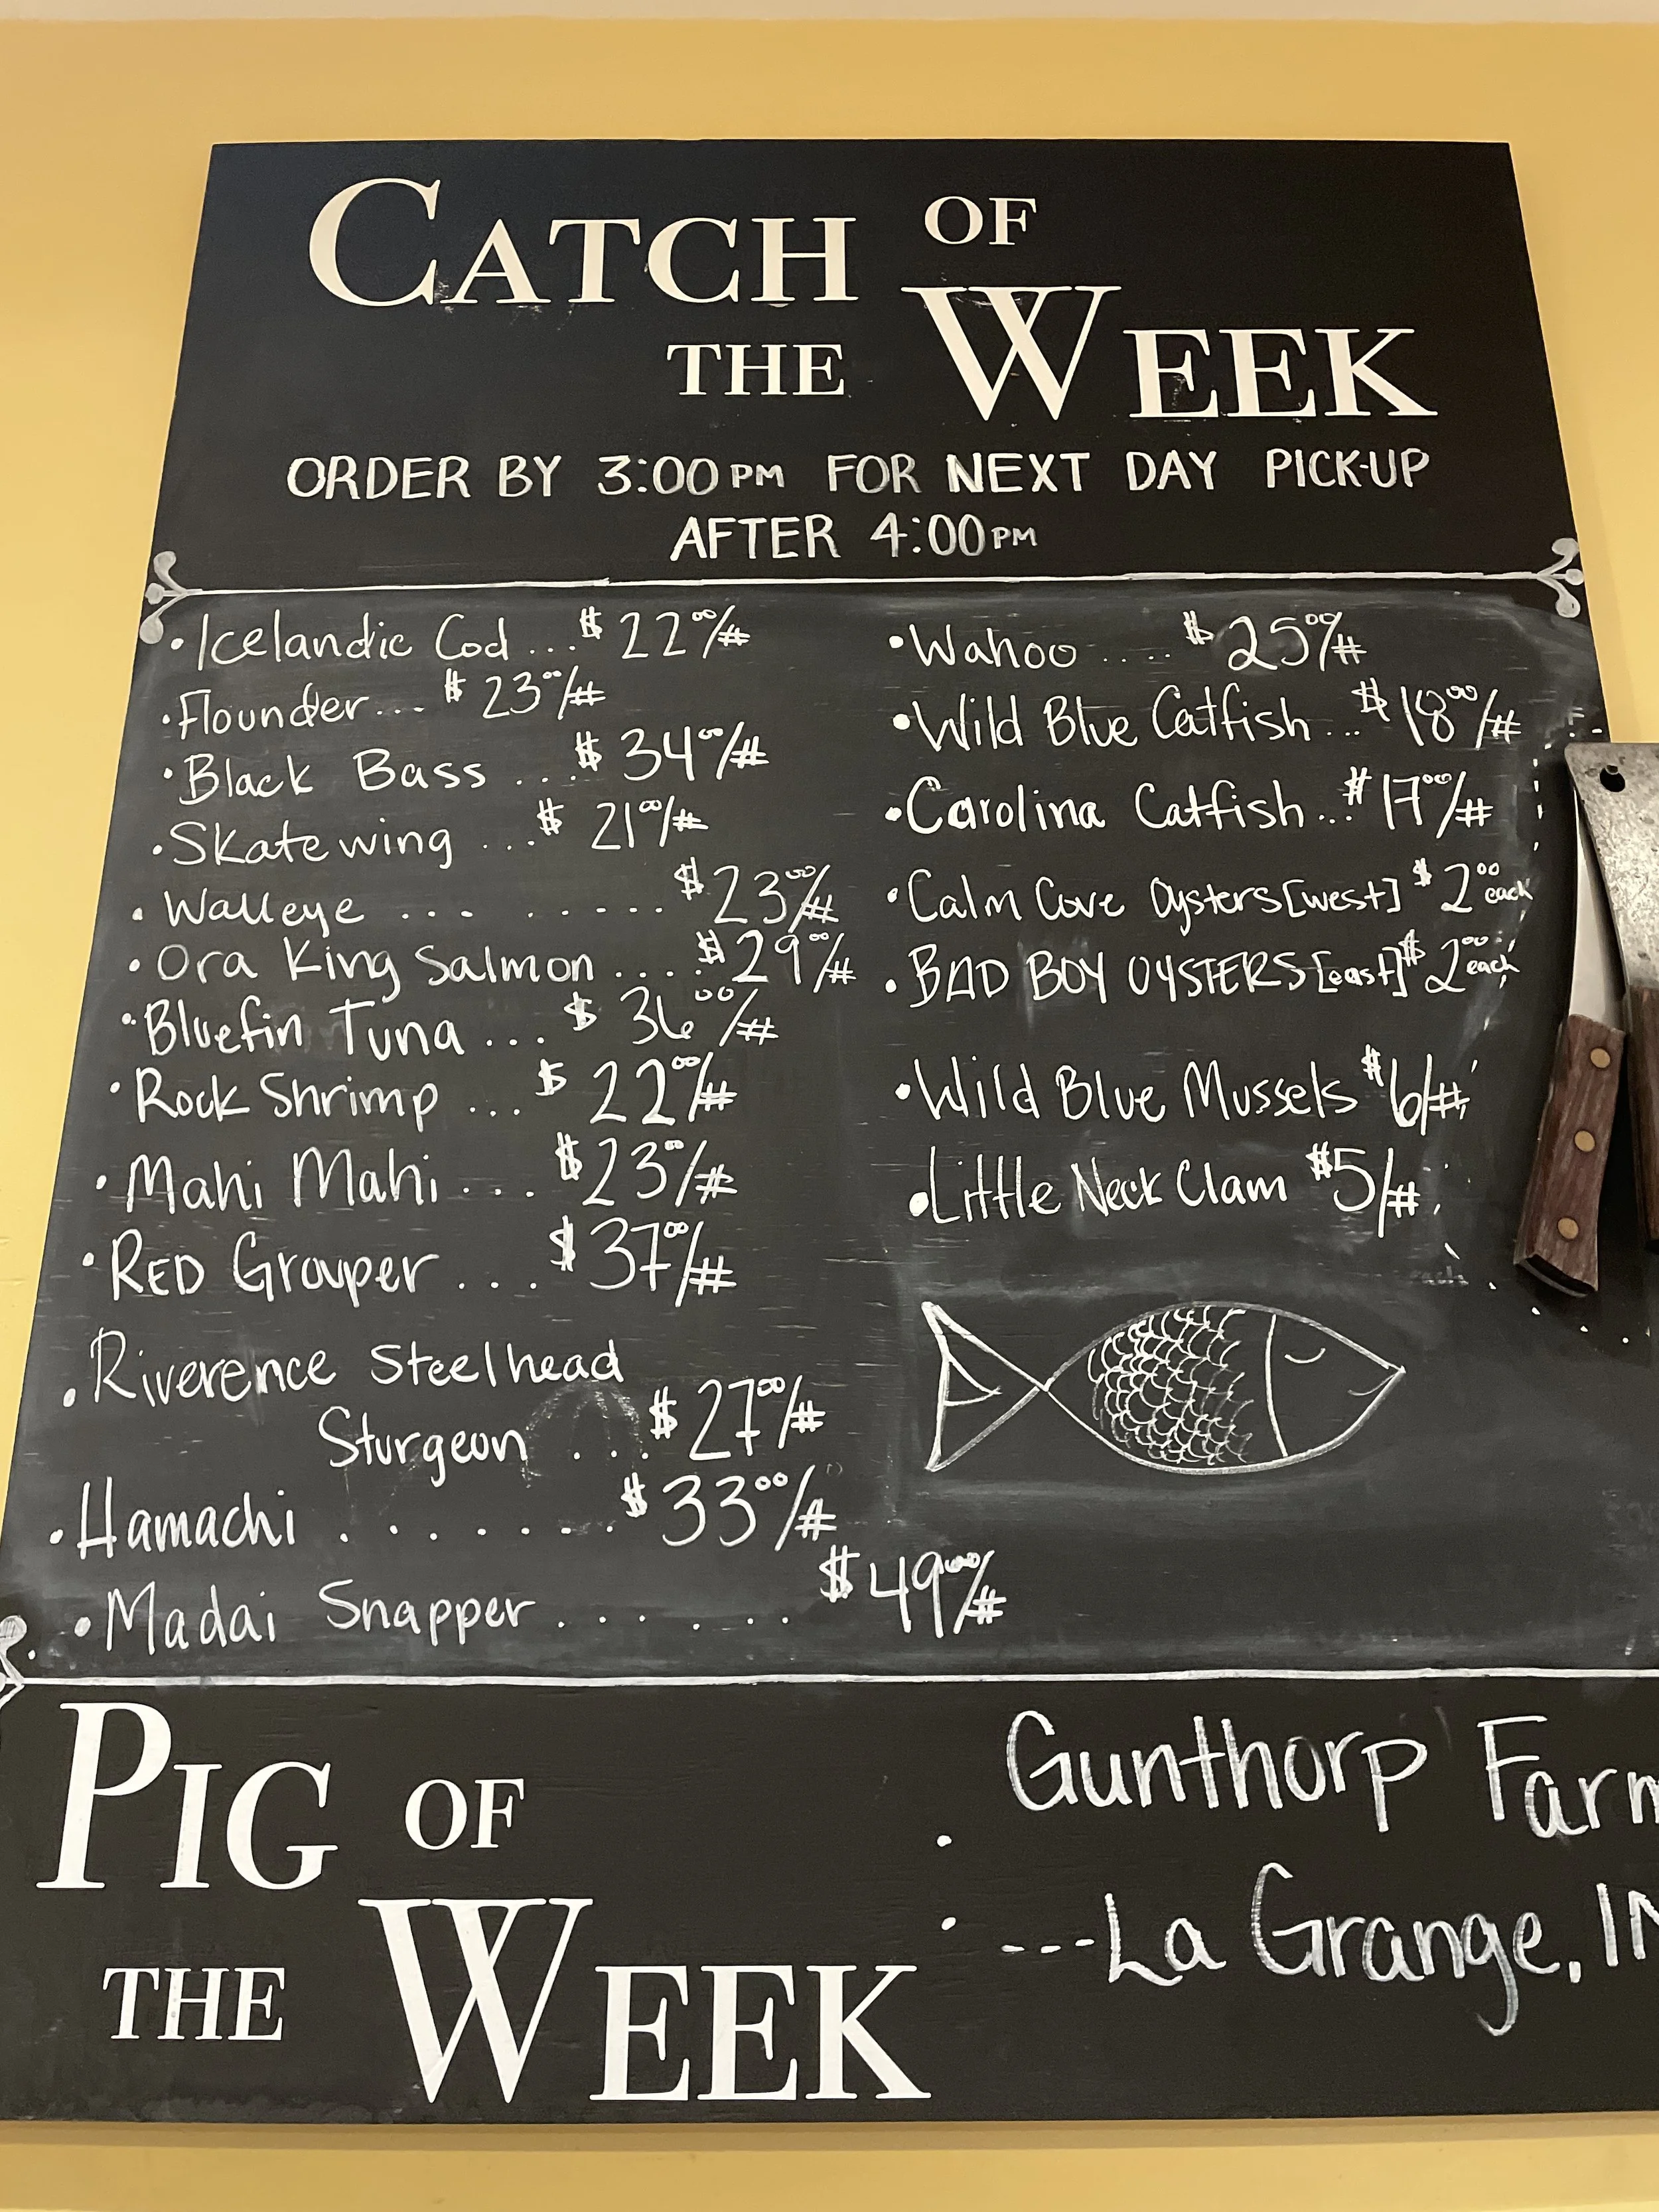 CATCH OF
THE WEEK
ORDER BY 3:00PM FOR NEXT DAY PICK-UP
AFTER 4:00PM
• Icelandic Cod ... $22⁰⁰/#
• Flounder ... $23⁰⁰/#
• Black Bass ... $34⁰⁰/#
• Skate wing ... $21⁰⁰/#
• Walleye ... ...... $23⁰⁰/#
• Ora King Salmon .... $29⁰⁰/#
• Bluefin Tuna ... $36⁰⁰/#
• Rock Shrimp ... $22⁰⁰/#
• Mahi Mahi ... $23⁰⁰/#
• RED Grouper ... $37⁰⁰/#
• Riverence Steelhead
Sturgeon ... $27⁰⁰/#
• Hamachi ....... $33⁰⁰/#
• Madai Snapper ...... $49⁰⁰/#
• Wahoo .... $25⁰⁰/#
• Wild Blue Catfish ... $18⁰⁰/#
• Carolina Catfish ... $17⁰⁰/#
• Calm Cove Oysters [west] $2⁰⁰ each
• BAD BOY OYSTERS [east] $2⁰⁰ each
• Wild Blue Mussels $6/#
• Little Neck Clam $5/#
PIG OF
THE WEEK
• Gunthorp Farm
• ---La Grange, IN